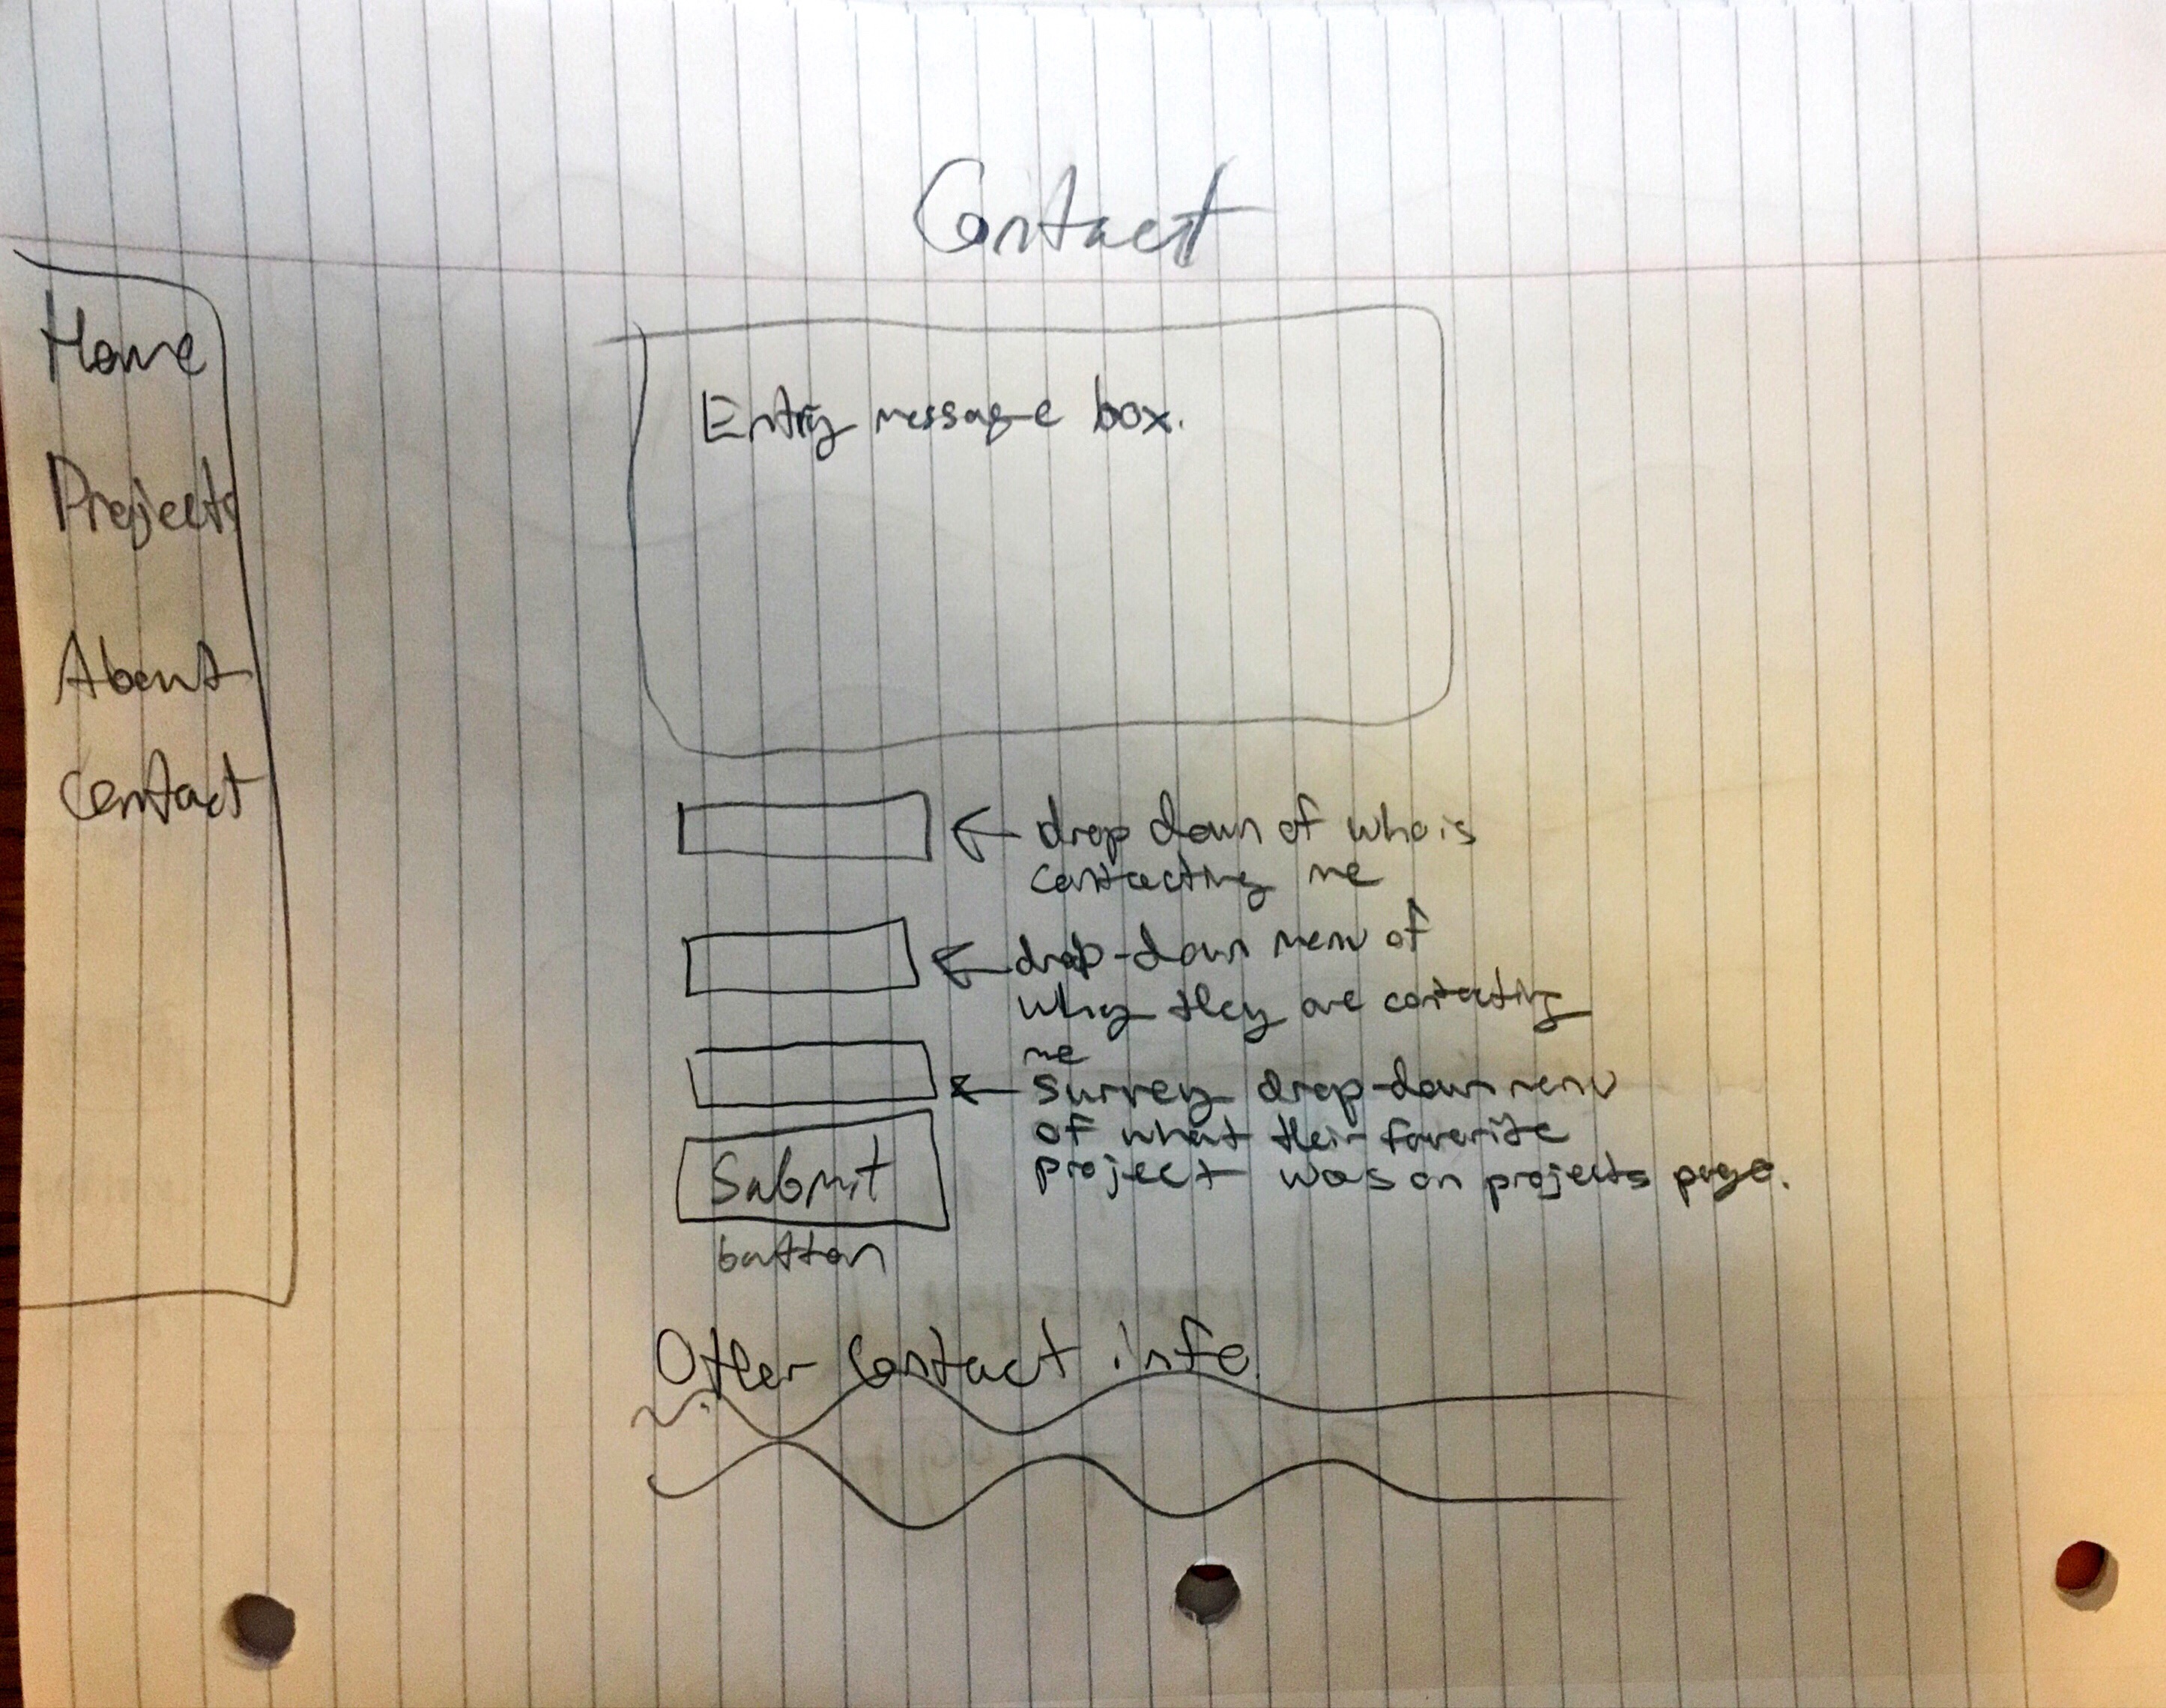 Contact
Home
Projects
About
Contact
Entry message box.
drop down of who is
contacting me
drop-down menu of
why they are contacting
me
survey drop-down menu
of what their favorite
project was on projects page.
Submit
button
Other Contact info